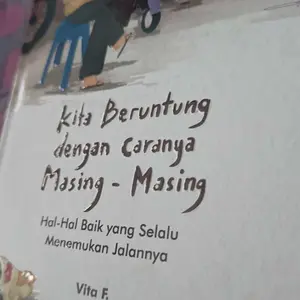 Kita Beruntung
dengan Caranya
Masing - Masing
Hal-Hal Baik yang Selalu
Menemukan Jalannya
Vita F.